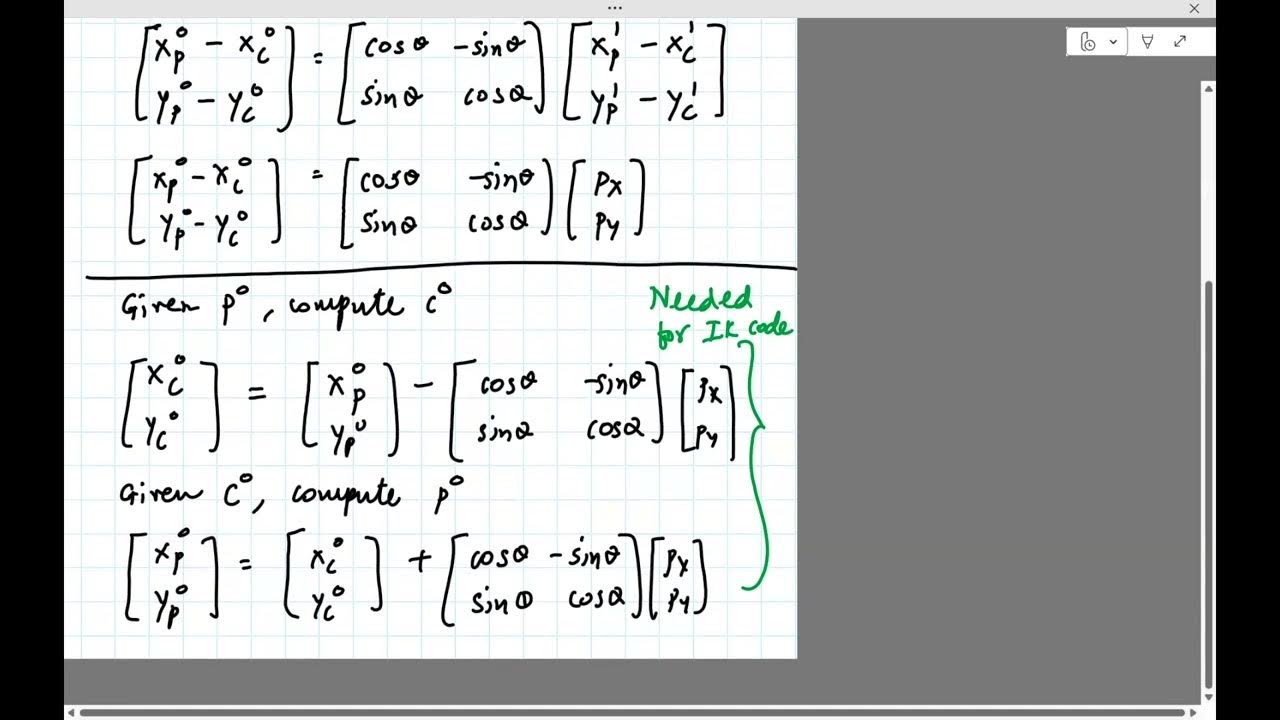 [x_p^0 - x_c^0; y_p^0 - y_c^0] = [cosθ -sinθ; sinθ cosθ] [x_p^1 - x_c^1; y_p^1 - y_c^1]
[x_p^0 - x_c^0; y_p^0 - y_c^0] = [cosθ -sinθ; sinθ cosθ] [px; py]
Given p^0, compute c^0
Needed
for IK code
[x_c^0; y_c^0] = [x_p^0; y_p^0] - [cosθ -sinθ; sinθ cosθ] [px; py]
Given c^0, compute p^0
[x_p^0; y_p^0] = [x_c^0; y_c^0] + [cosθ -sinθ; sinθ cosθ] [px; py]